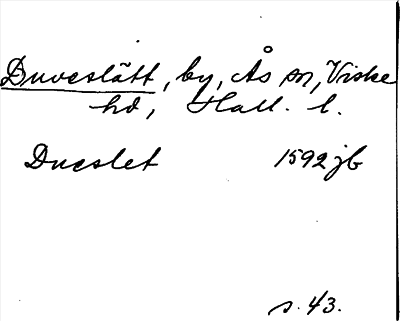 Duveslätt, by, Ås sn, Viske
hd, Hall. l.
Dueslet 1592 jb
s. 43.